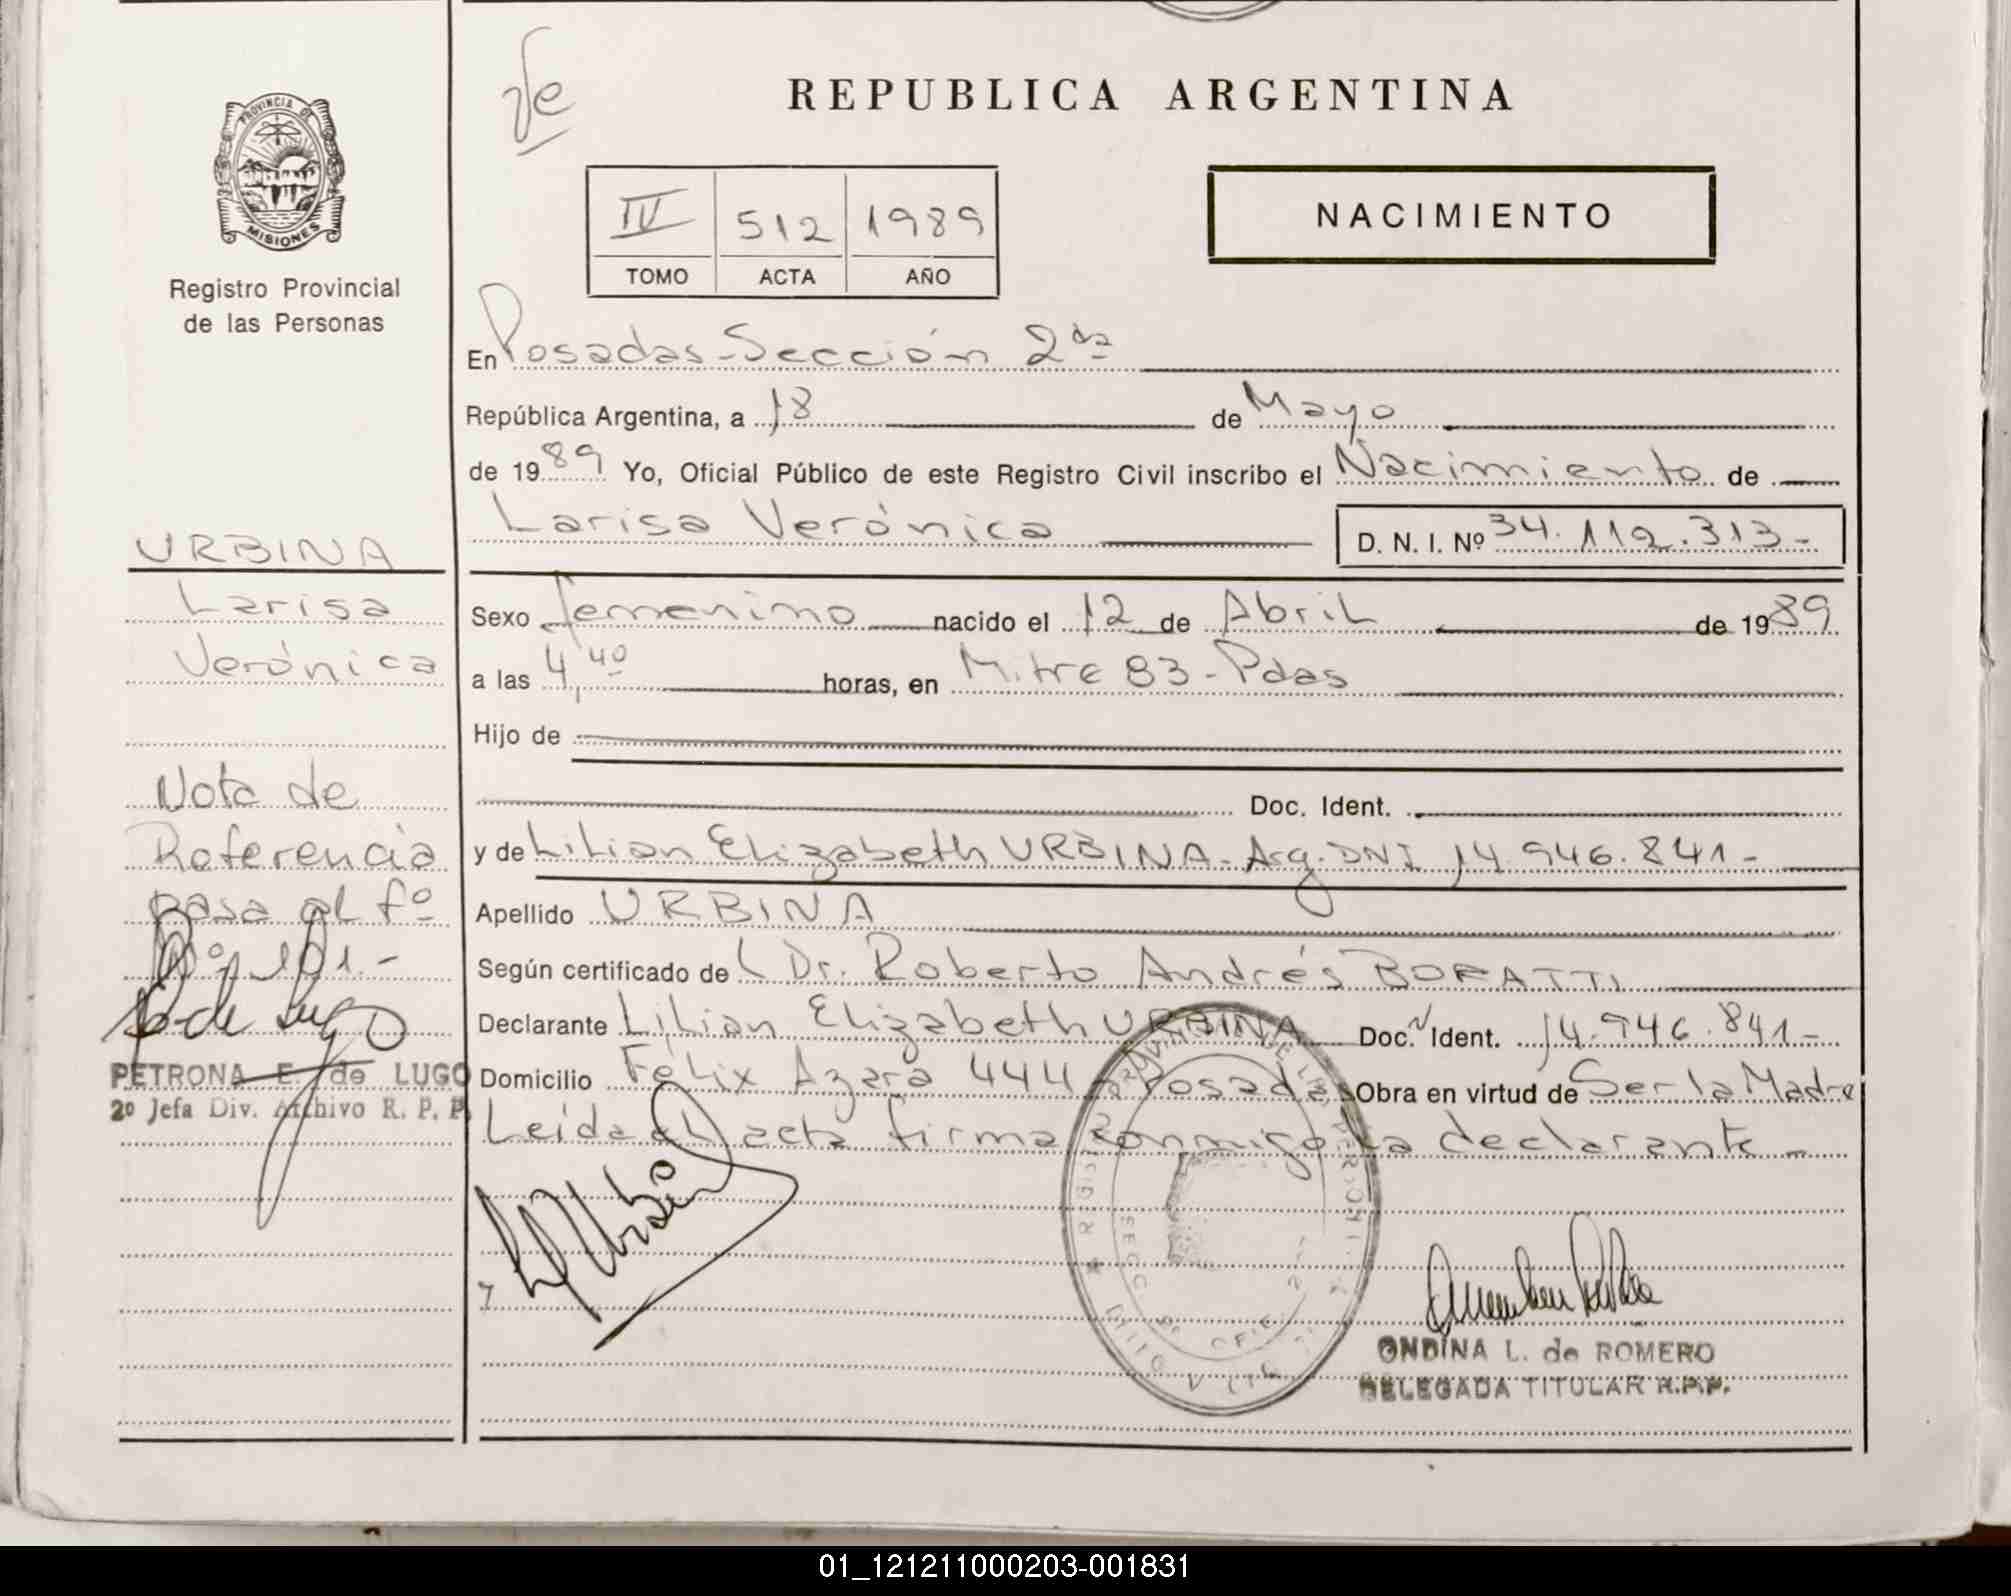 REPUBLICA ARGENTINA
PROVINCIA DE
MISIONES
Registro Provincial
de las Personas
IV 512 1989
TOMO ACTA AÑO
NACIMIENTO
En Posadas-Sección 2da
República Argentina, a 18 de Mayo
de 1989 Yo, Oficial Público de este Registro Civil inscribo el Nacimiento de
Larisa Verónica D. N. I. Nº 34.112.313-
Sexo femenino nacido el 12 de Abril de 1989
a las 4,40 horas, en Mitre 83-Pdas
Hijo de
Doc. Ident.
y de Lilian Elizabeth URBINA-Arg.DNI 14.946.841-
Apellido URBINA
Según certificado de L Dr. Roberto Andrés BORATTI
Declarante Lilian Elizabeth URBINA Doc. Ident. 14.946.841-
Domicilio Félix Azara 444-Posadas Obra en virtud de Ser la Madre
Leida el acta firma conmigo la declarante-
ONDINA L. de ROMERO
DELEGADA TITULAR R.P.P.
URBINA
Larisa
Verónica
Nota de
Referencia
pasa al fº
Nº 101.-
PETRONA E. de LUGO
2º Jefa Div. Archivo R. P. P.
01_121211000203-001831